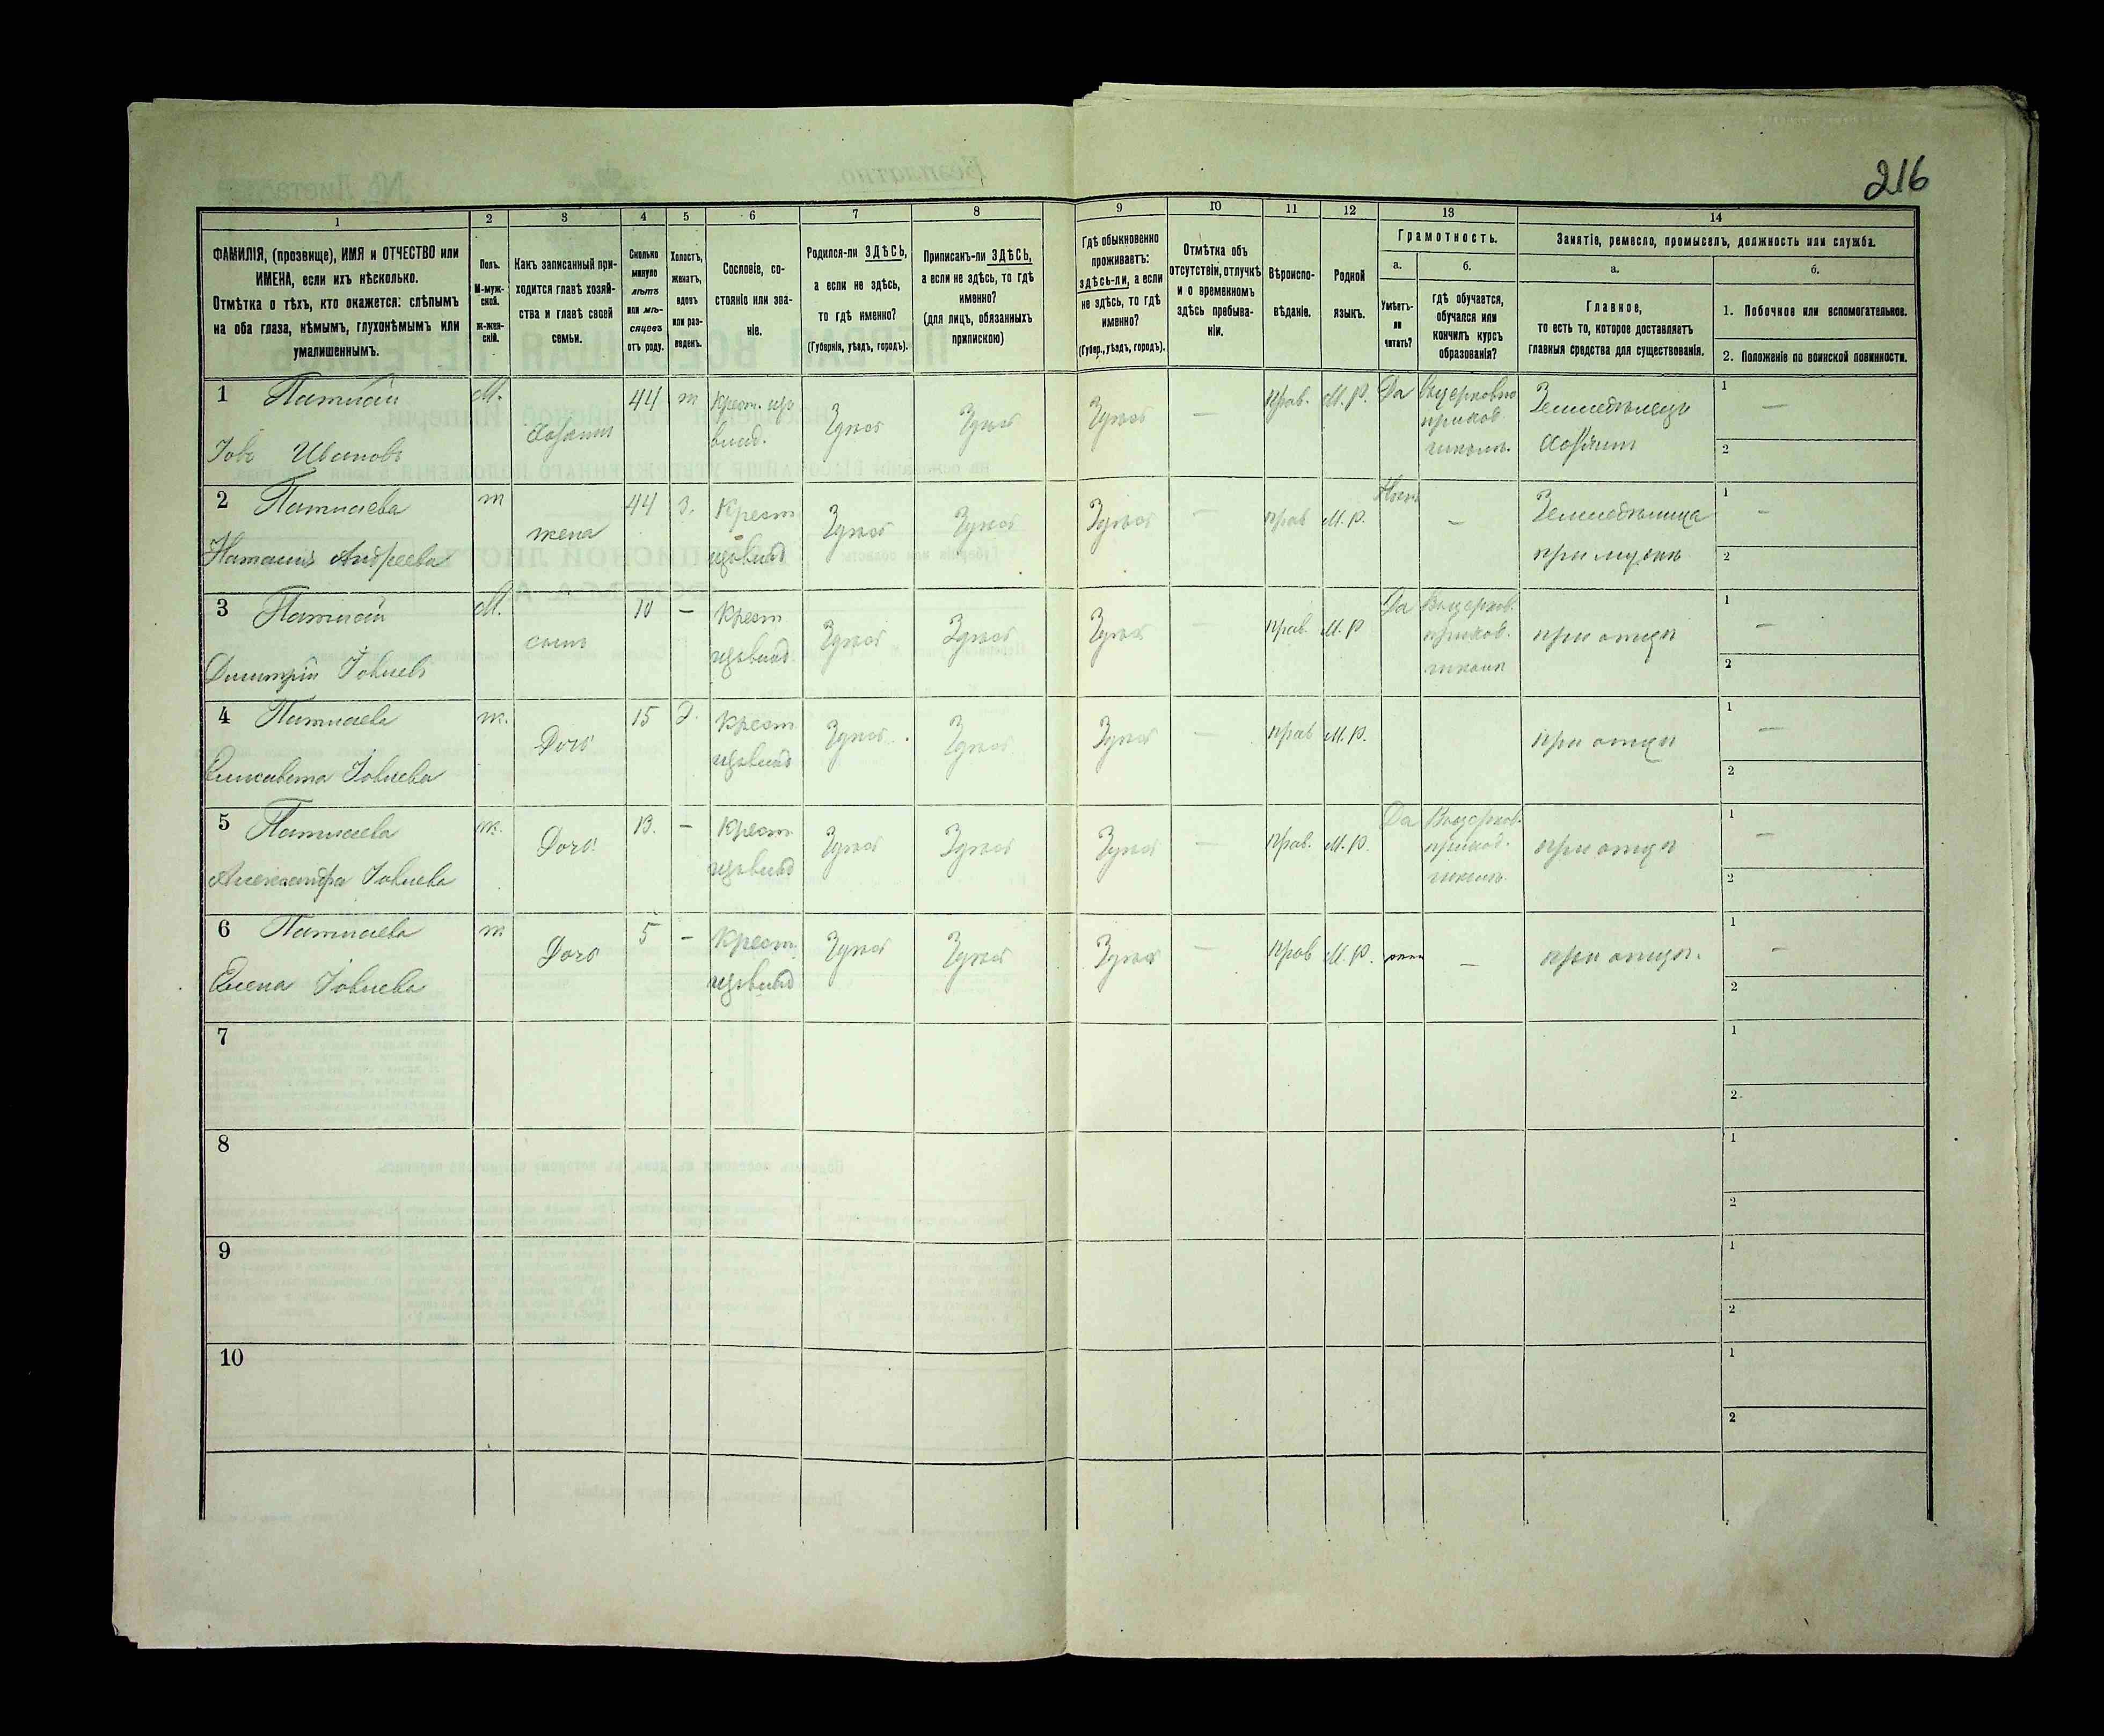 216
1
2
3
4
5
6
7
8
9
10
11
12
13
14
ФАМИЛІЯ, (прозвище), ИМЯ и ОТЧЕСТВО или
ИМЕНА, если ихъ нѣсколько.
Отмѣтка о тѣхъ, кто окажется: слѣпымъ
на оба глаза, нѣмымъ, глухонѣмымъ или
умалишеннымъ.
Полъ.
М-муж-
ской.
Ж-жен-
скій.
Какъ записанный при-
ходится главѣ хозяй-
ства и главѣ своей
семьи.
Сколько
минуло
лѣтъ
или мѣ-
сяцевъ
отъ роду.
Холостъ,
женатъ,
вдовъ
или раз-
веденъ.
Сословіе, со-
стояніе или зва-
ніе.
Родился-ли ЗДѢСЬ,
а если не здѣсь,
то гдѣ именно?
(Губернія, уѣздъ, городъ).
Приписанъ-ли ЗДѢСЬ,
а если не здѣсь, то гдѣ
именно?
(для лицъ, обязанныхъ
припискою)
Гдѣ обыкновенно
проживаетъ:
здѣсь-ли, а если
не здѣсь, то гдѣ
именно?
(Губер., уѣздъ, городъ).
Отмѣтка объ
отсутствіи, отлучкѣ
и о временномъ
здѣсь пребыва-
ніи.
Вѣроиспо-
вѣданіе.
Родной
языкъ.
Грамотность.
а.
Умѣетъ-
ли
читать?
б.
гдѣ обучается,
обучался или
кончилъ курсъ
образованія?
Занятіе, ремесло, промыселъ, должность или служба.
а.
Главное,
то есть то, которое доставляетъ
главныя средства для существованія.
б.
1. Побочное или вспомогательное.
2. Положеніе по воинской повинности.
1
Іовъ Ивановъ
М.
хозяинъ
44
ж
Крест.
Здѣсь
Здѣсь
Здѣсь
—
прав.
М. Р.
Да
школѣ
Земледѣлецъ
хозяинъ
1 —
2
2
Наталія Андреева
ж
жена
44
З.
Крест
Здѣсь
Здѣсь
Здѣсь
—
прав
М. Р.
Нѣтъ
—
при мужѣ
1 —
2
3
Димитрій Іовлевъ
М.
сынъ
10
—
Крест
Здѣсь
Здѣсь
Здѣсь
—
прав.
М. Р.
Да
школѣ
при отцѣ
1 —
2
4
Елисавета Іовлева
ж.
Дочь
15
Д.
Крест
Здѣсь
Здѣсь
Здѣсь
—
прав
М. Р.
при отцѣ
1 —
2
5
Александра Іовлева
ж.
Дочь
13.
—
Крест
Здѣсь
Здѣсь
Здѣсь
—
прав.
М. Р.
Да
школѣ
при отцѣ
1 —
2
6
Елена Іовлева
ж
Дочь
5
—
Крест
Здѣсь
Здѣсь
Здѣсь
—
прав
М. Р.
—
при отцѣ.
1 —
2
7
1
2
8
1
2
9
1
2
10
1
2